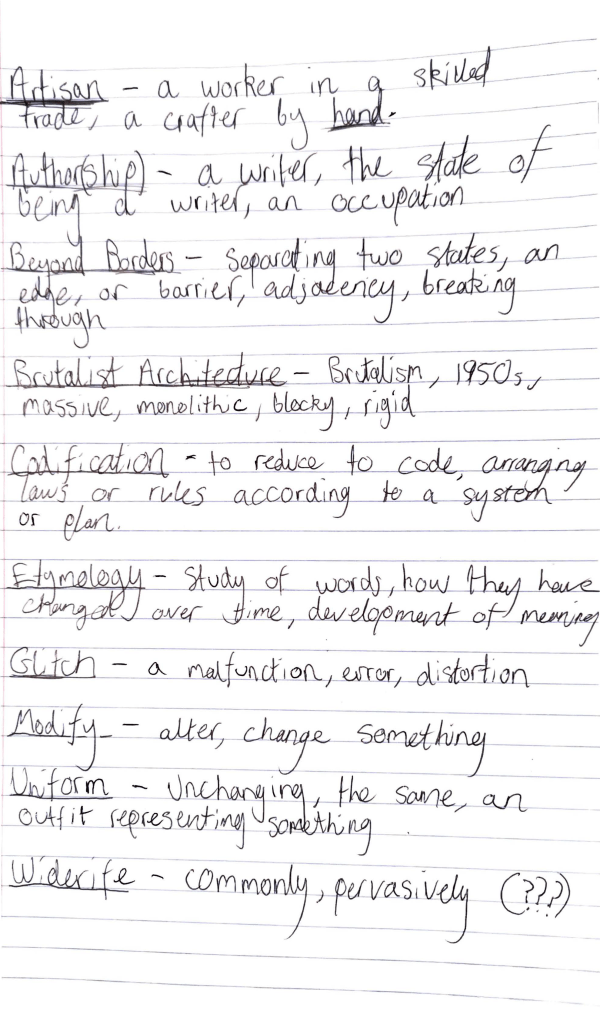 Artisan - a worker in a skilled
trade, a crafter by hand.
Author(ship) - a writer, the state of
being a writer, an occupation
Beyond Borders - separating two states, an
edge, or barrier, adjacency, breaking
through
Brutalist Architecture - Brutalism, 1950s,
massive, monolithic, blocky, rigid
Codification - to reduce to code, arranging
laws or rules according to a system
or plan.
Etymology - study of words, how they have
changed over time, development of meaning
Glitch - a malfunction, error, distortion
Modify - alter, change something
Uniform - Unchanging, the same, an
outfit representing something
Widerife - commonly, pervasively (???)